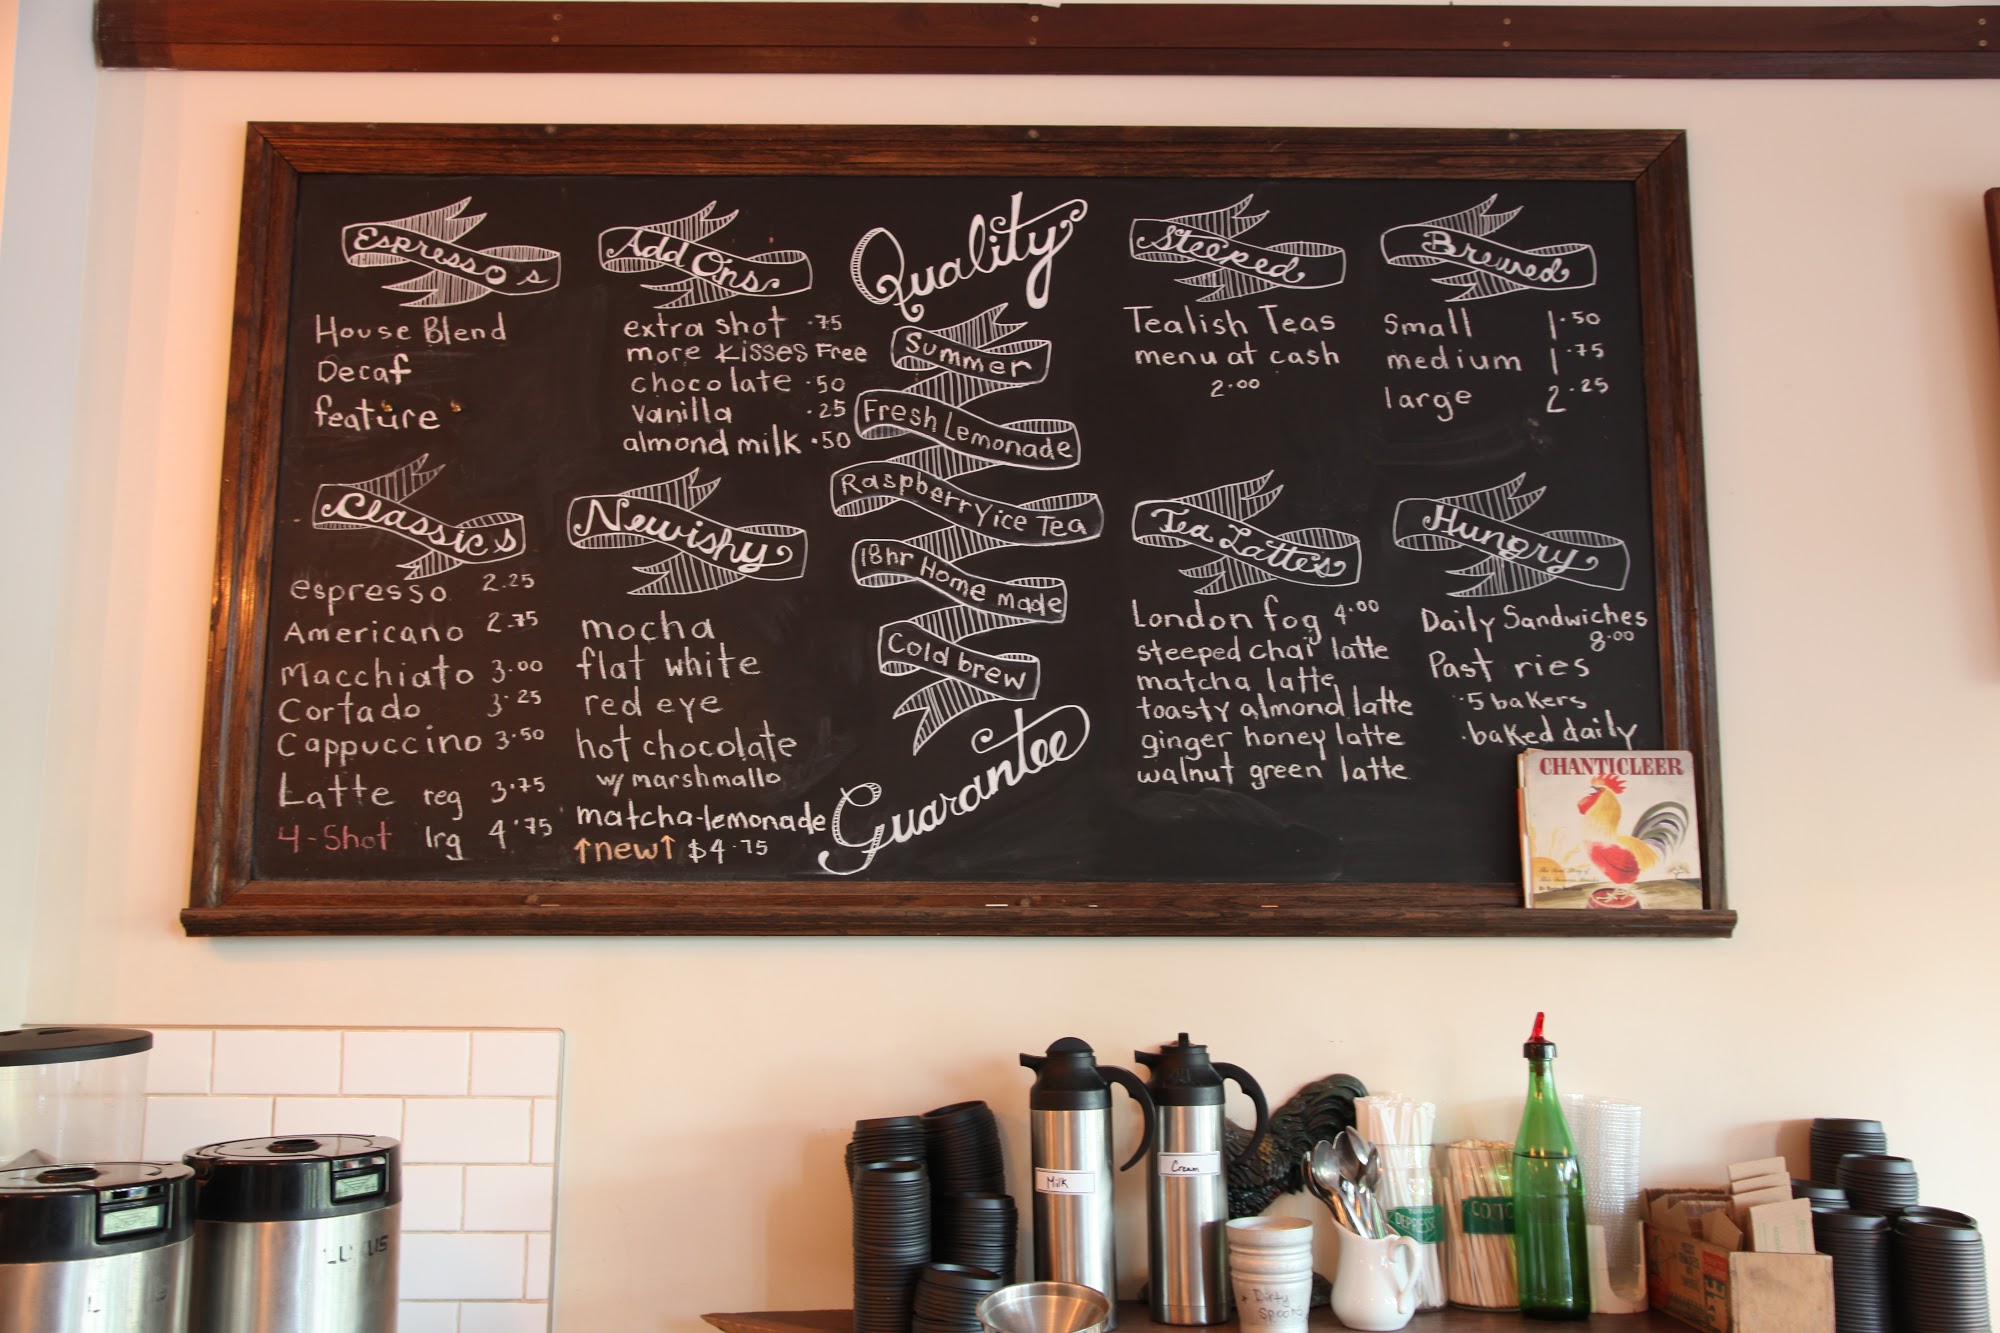 Espresso's
House Blend
Decaf
feature
Classics
espresso 2.25
Americano 2.75
Macchiato 3.00
Cortado 3.25
Cappuccino 3.50
Latte reg 3.75
4-Shot lrg 4.75
Add Ons
extra shot .75
more kisses Free
chocolate .50
vanilla .25
almond milk .50
Newishy
mocha
flat white
red eye
hot chocolate
w/ marshmallo
matcha-lemonade
↑new↑ $4.75
Quality
Summer
Fresh Lemonade
Raspberry ice Tea
18hr Home made
Cold brew
Guarantee
Steeped
Tealish Teas
menu at cash
2.00
Tea Lattes
London fog 4.00
steeped chai latte
matcha latte
toasty almond latte
ginger honey latte
walnut green latte
Brewed
Small 1.50
medium 1.75
large 2.25
Hungry
Daily Sandwiches
8.00
Past ries
.5 bakers
.baked daily
CHANTICLEER
Milk
Cream
Dirty
Spoons